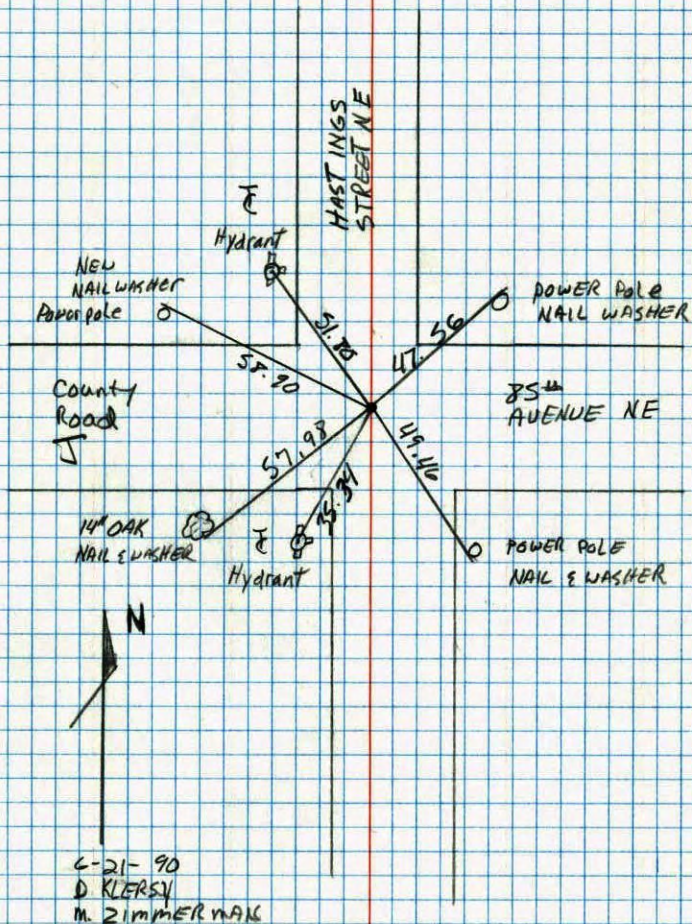 HASTINGS
STREET NE
Hydrant
NEW
NAIL WASHER
Power pole
POWER Pole
NAIL WASHER
51.80
47.56
58.90
County
Road
J
85th
AVENUE NE
57.98
49.46
35.34
14" OAK
NAIL & WASHER
Hydrant
POWER POLE
NAIL & WASHER
N
6-21-90
D KLERSY
M. ZIMMERMAN